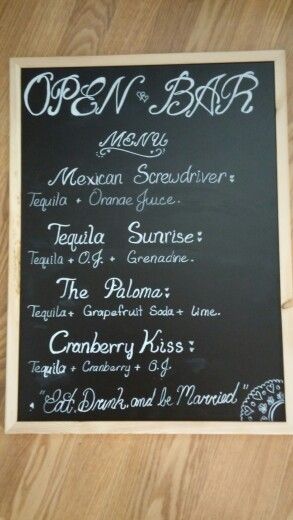 OPEN BAR
MENU
Mexican Screwdriver:
Tequila + Orange Juice.
Tequila Sunrise:
Tequila + O.J. + Grenadine.
The Paloma:
Tequila + Grapefruit Soda + Lime.
Cranberry Kiss:
Tequila + Cranberry + O.J.
"Eat, Drink, and be Married"